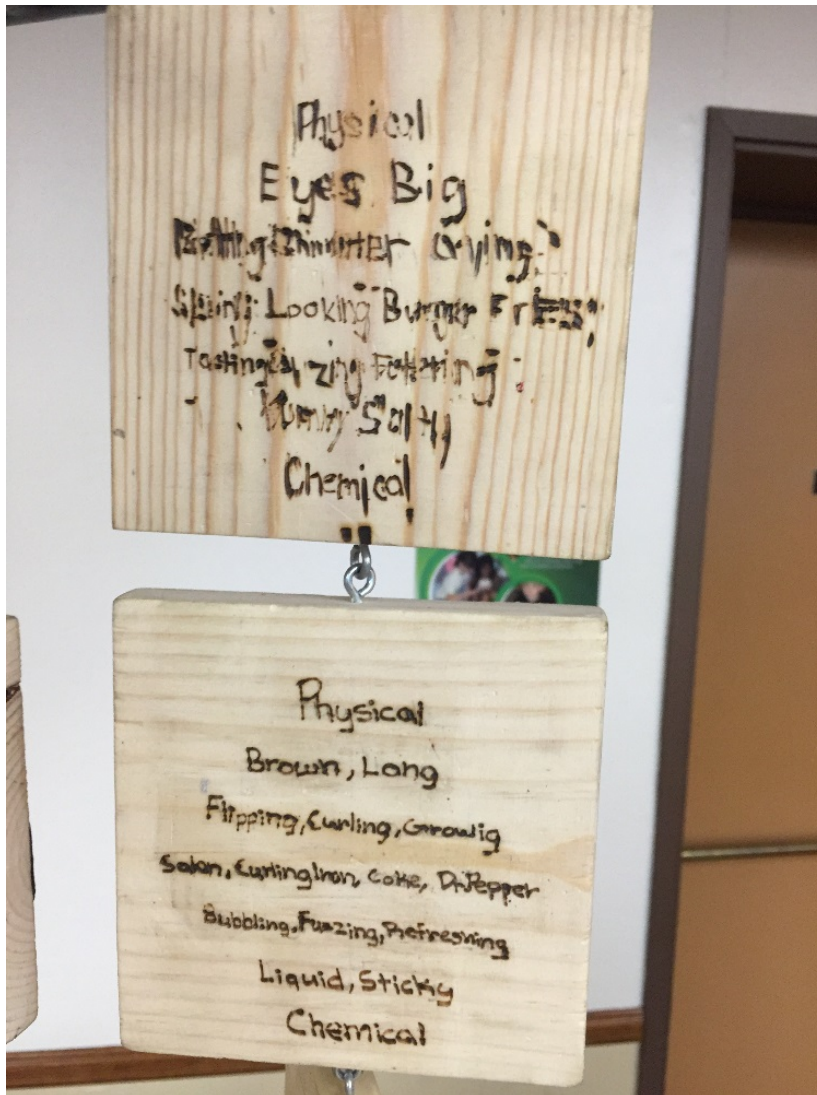 Physical
Eyes Big
Crying
Looking Burger Fries,
Tasting
Salty
Chemical
Physical
Brown, Long
Flipping, Curling, Growig
Salon, Curling Iron, Coke, Dr.Pepper
Bubbling, Fuzzing, Refreshing
Liquid, Sticky
Chemical